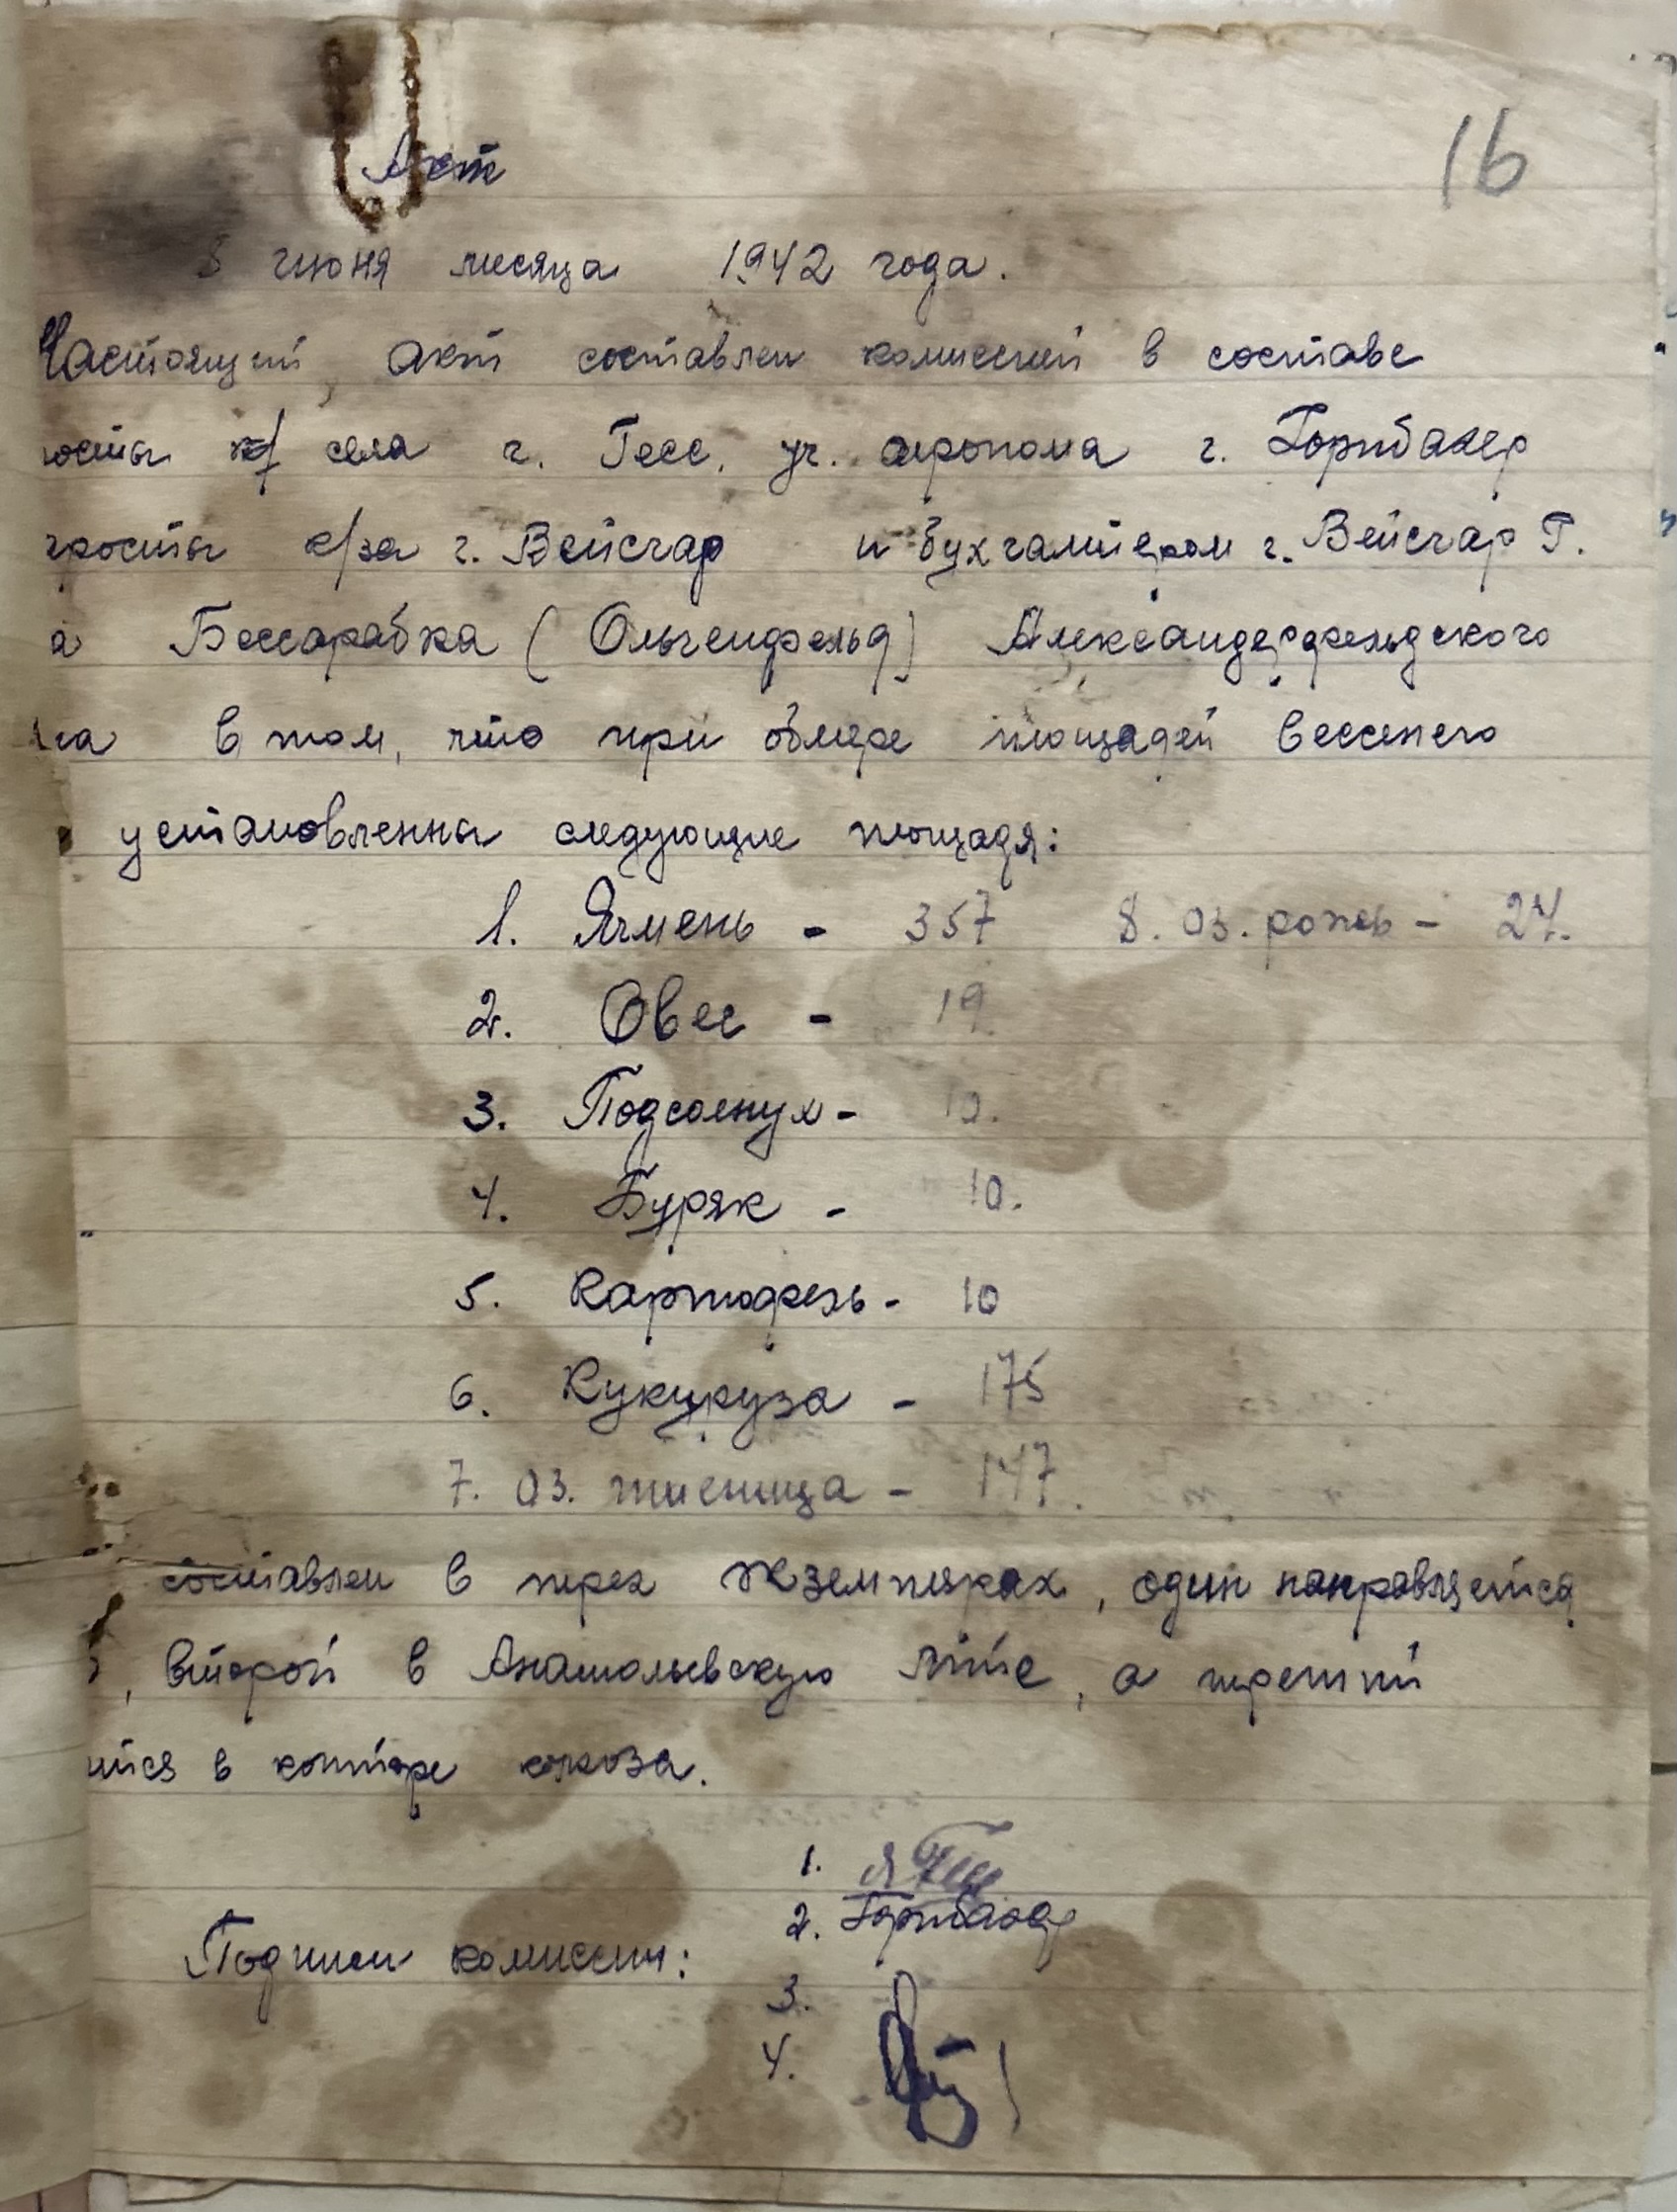 16
Акт
8 июня месяца 1942 года.
Настоящий акт составлен комиссией в составе
росты села г. Гесс, уч. агронома г. Горнбахер
тросты к/за г. Вейсгар и бухгалтером г. Вейсгар Г.
а Бессарабка (Ольгенфельд) Александерфельдского
на в том, что при обмере площадей весеннего
установленны следующие площадя:
1. Ячмень - 357 8. оз. рожь - 27.
2. Овес - 19.
3. Подсолнух -
4. Буряк - 10.
5. Картофель - 10
6. Кукуруза - 175
7. оз. пшеница - 147.
составлен в трех экземплярах, один направляется
, второй в Анатольевскую МТС, а третий
ится в конторе колхоза.
1.
2. Горнбахер
Подписи комиссии:
3.
4.